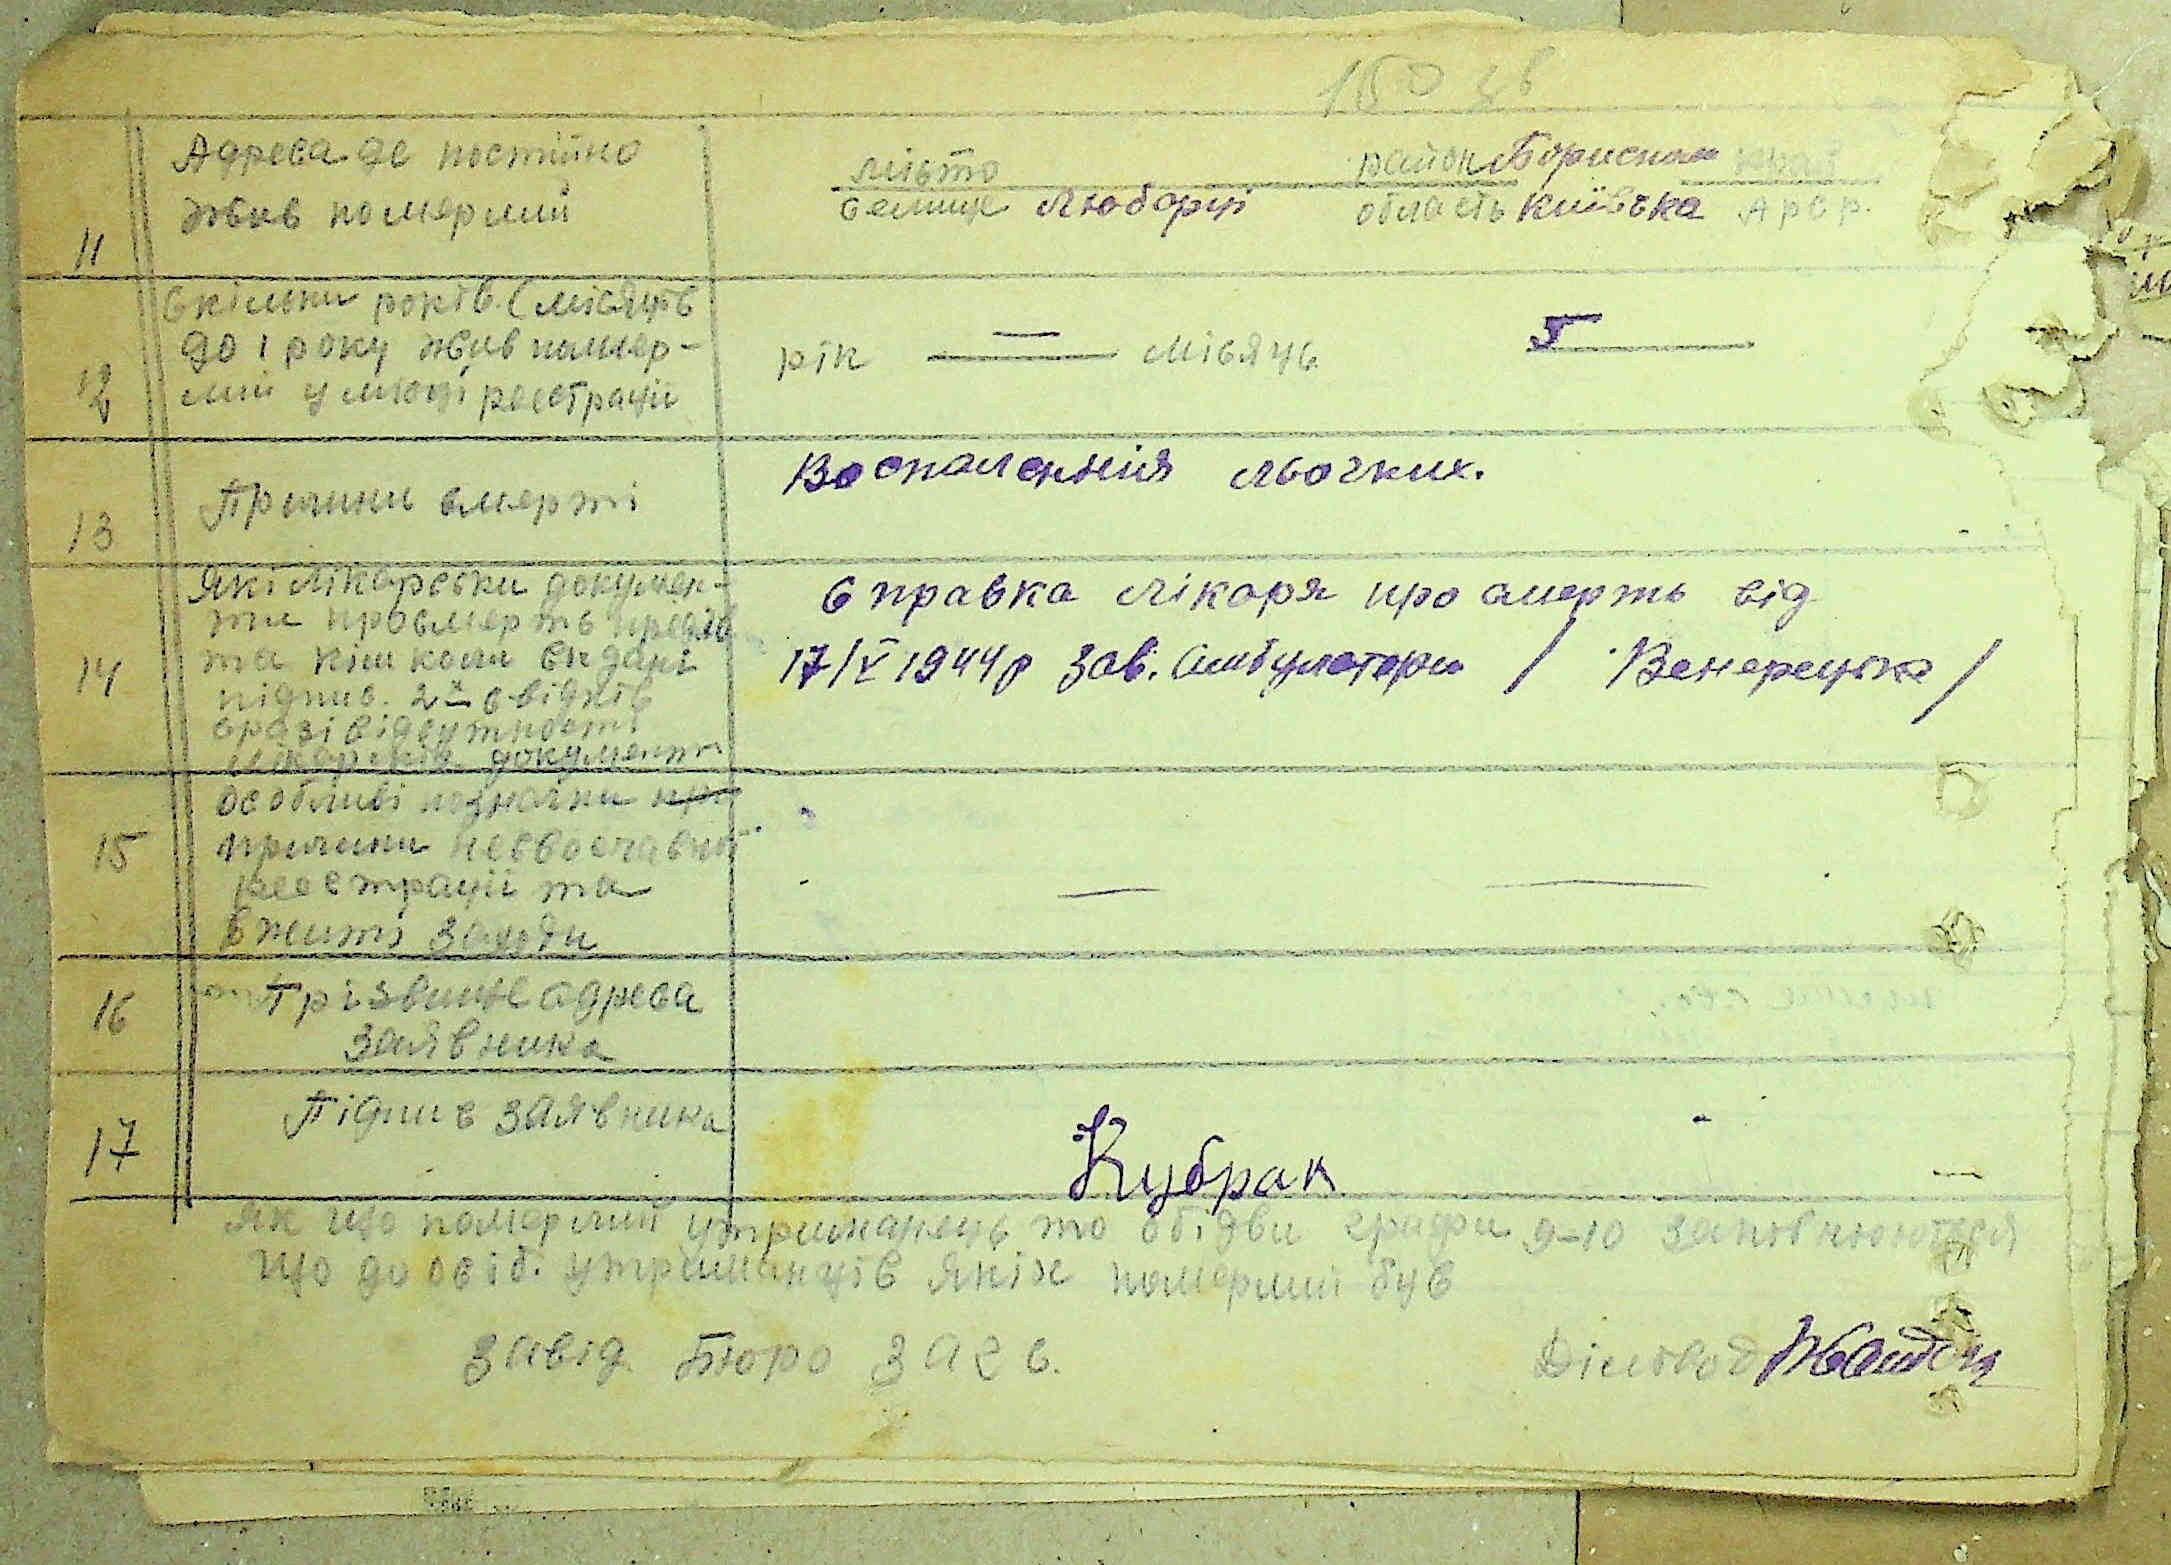 150 зв
11 Адреса де постійно
жив померлий
місто район Бориспол край
селище Любарці область Київська АРСР.
12 Скільки років (місяців
до 1 року жив помер-
лий у місці реєстрації
рік — місяць 5
13 Причини смерті
Воспаленния льогких.
14 Які лікарськи докумен-
ти про смерть
та ким коли видані
підпис. 2х свідків
в разі відсутності
лікарськ. документів
Справка лікоря про смерть від
17/V 1944 р Зав. Амбулатори / Венерецька /
15 Особливі позначки
причини несвоечасної
реєстрації та
вжиті заходи
— —
16 Прізвище адреса
заявника
17 Підпис заявника
Кубрак
Як що померлий утриманець то обідви графи 9-10 заповнюються
що до осіб. утриманців яких померлий був
Завід. Бюро Загс. Діловод